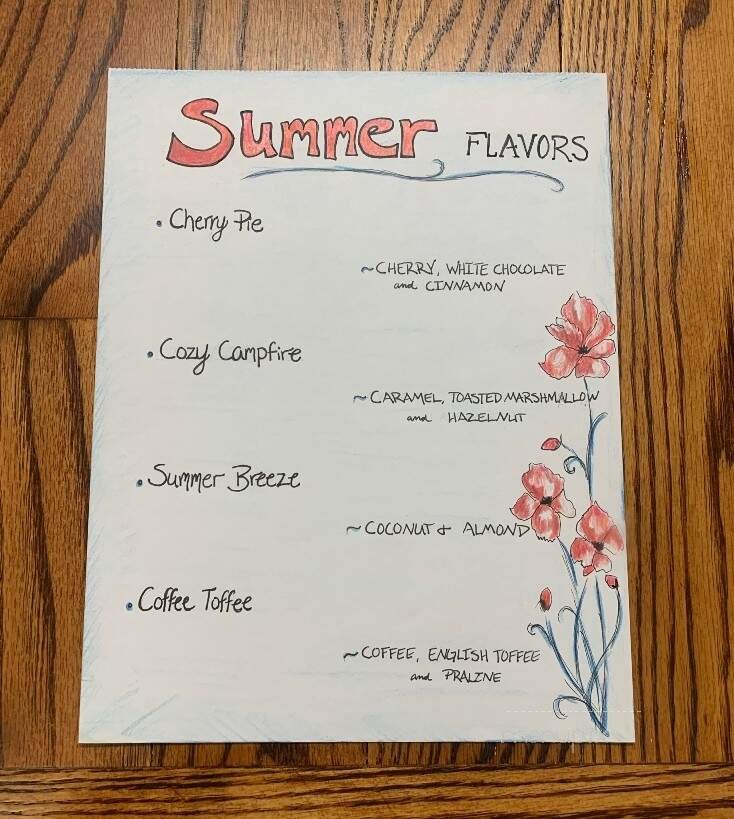 Summer FLAVORS
• Cherry Pie
~CHERRY, WHITE CHOCOLATE
and CINNAMON
• Cozy Campfire
~CARAMEL, TOASTED MARSHMALLOW
and HAZELNUT
• Summer Breeze
~COCONUT & ALMOND
• Coffee Toffee
~COFFEE, ENGLISH TOFFEE
and PRALINE